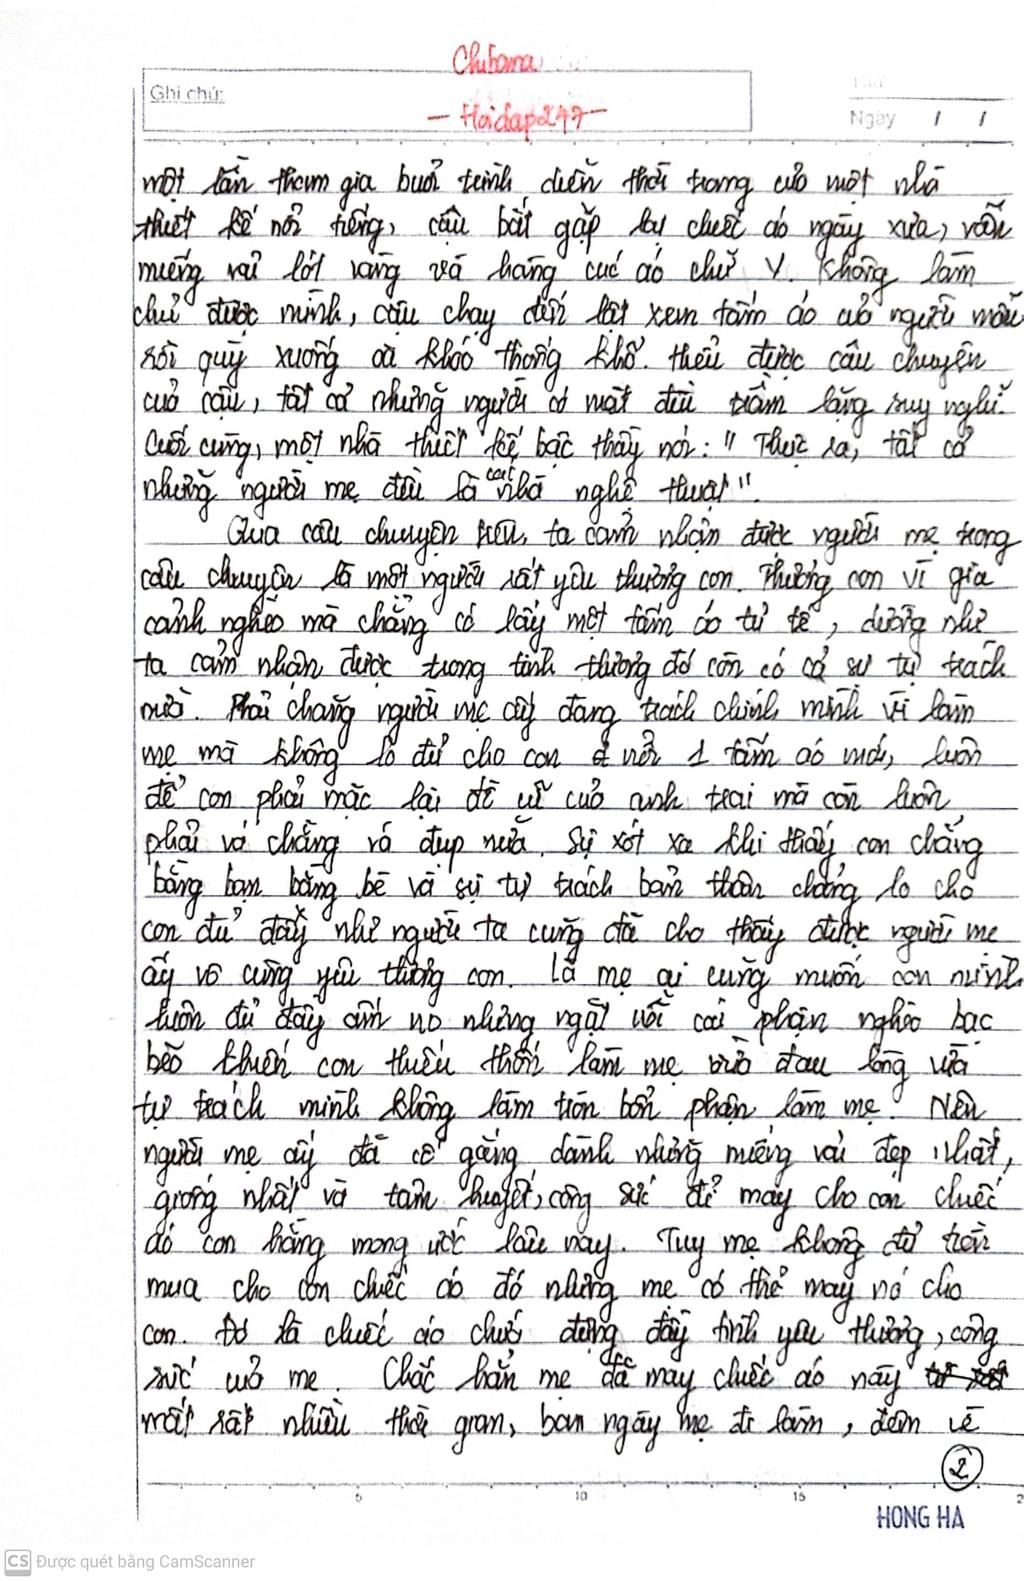 Chibana
Ghi chú:
- Hoidap247 -
Thứ
Ngày / /
một lần tham gia buổi trình diễn thời trang của một nhà
thiết kế nổi tiếng, cậu bắt gặp lại chiếc áo ngày xưa, vẫn
miếng vải lót vàng và hàng cúc áo chữ V. Không làm
chủ được mình, cậu chạy đến lật xem tấm áo của người mẫu
rồi quỳ xuống oà khóc thống khổ. Hiểu được câu chuyện
của cậu, tất cả những người có mặt đều trầm lặng suy nghĩ.
Cuối cùng, một nhà thiết kế bậc thầy nói: "Thực ra, tất cả
những người mẹ đều là các nhà nghệ thuật".
Qua câu chuyện trên, ta cảm nhận được người mẹ trong
câu chuyện là một người rất yêu thương con. Thương con vì gia
cảnh nghèo mà chẳng có lấy một tấm áo tử tế, dường như
ta cảm nhận được trong tình thương đó còn có cả sự tự trách
nữa. Phải chăng người mẹ ấy đang trách chính mình vì làm
mẹ mà không lo đủ cho con nổi 1 tấm áo mới, luôn
để con phải mặc lại đồ cũ của anh trai mà còn luôn
phải vá chằng vá đụp nữa. Sự xót xa khi thấy con chẳng
bằng bạn bằng bè và sự tự trách bản thân chẳng lo cho
con đủ đầy như người ta cũng đã cho thấy được người mẹ
ấy vô cùng yêu thương con. Là mẹ ai cũng muốn con mình
luôn đủ đầy ấm no nhưng ngặt nỗi cái phận nghèo bạc
bẽo khiến con thiếu thốn làm mẹ vừa đau lòng vừa
tự trách mình không làm tròn bổn phận làm mẹ. Nên
người mẹ ấy đã cố gắng dành những miếng vải đẹp nhất,
giống nhất và tâm huyết, công sức để may cho con chiếc
áo con hằng mong ước lâu nay. Tuy mẹ không đủ tiền
mua cho con chiếc áo đó nhưng mẹ có thể may nó cho
con. Đó là chiếc áo chứa đựng đầy tình yêu thương, công
sức của mẹ. Chắc hẳn mẹ đã may chiếc áo này
mất rất nhiều thời gian, ban ngày mẹ đi làm, đêm về
2
5 10 15 2
HONG HA
CS Được quét bằng CamScanner